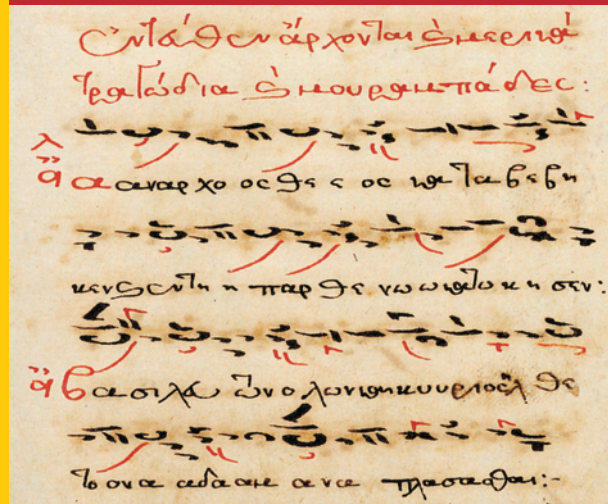 ἐνταύθεν ἄρχονται ϗ μερικὰ
τραγώδια ϗ μουραμπάδες:
α αναρχο ος θε ε ος κα τα βε βη
κεν ϗ εν τη η παρ θε νω ω κατω κη σεν:
βα σιλευ των ο λων και κυ υριος ελ θε
το ον α αδα αμ α να πλασασθαι:-